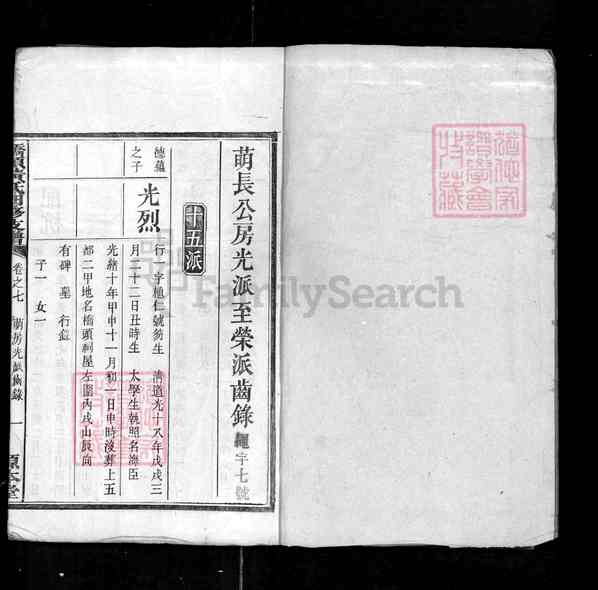 萌長公房光派至榮派齒錄 繩字七號
十五派
德蘊之子
光烈
行一字植仁號芴生 清道光十八年戊戌三
月二十二日丑時生 太學生執照名海臣
光緒十年甲申十一月初一日申時歿葬上五
都二甲地名橋頭祠屋左圍丙戌山辰向
有碑 墓 行鎰
子一 女一
卷之七 萌房光派齒錄 一
源本堂
FamilySearch